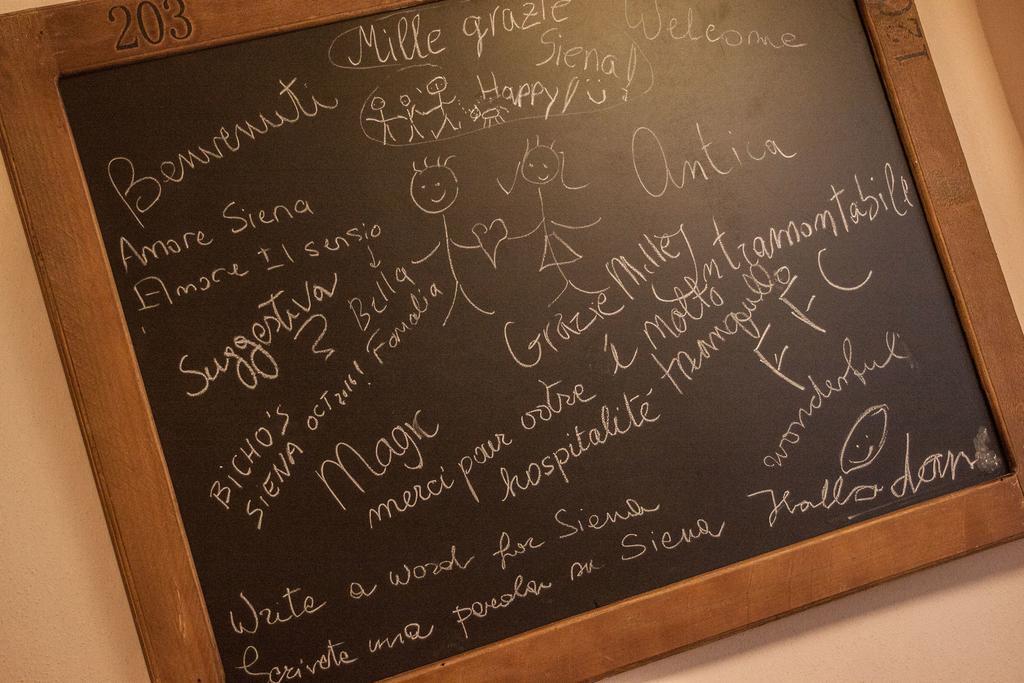 203
120
Mille grazie
Siena!
Welcome
Happy!
Benvenuti
Antica
Amore Siena
Amore Il sensio
Suggestiva
Bella
Famolia
Grazie Mille,
é molto intramontabile
tranquillo
F F C
BICHO'S
SIENA OCT 2014!
Magic
merci pour votre
hospitalité
wonderful
Hallo
Write a word for Siena
Scrivete una parola su Siena